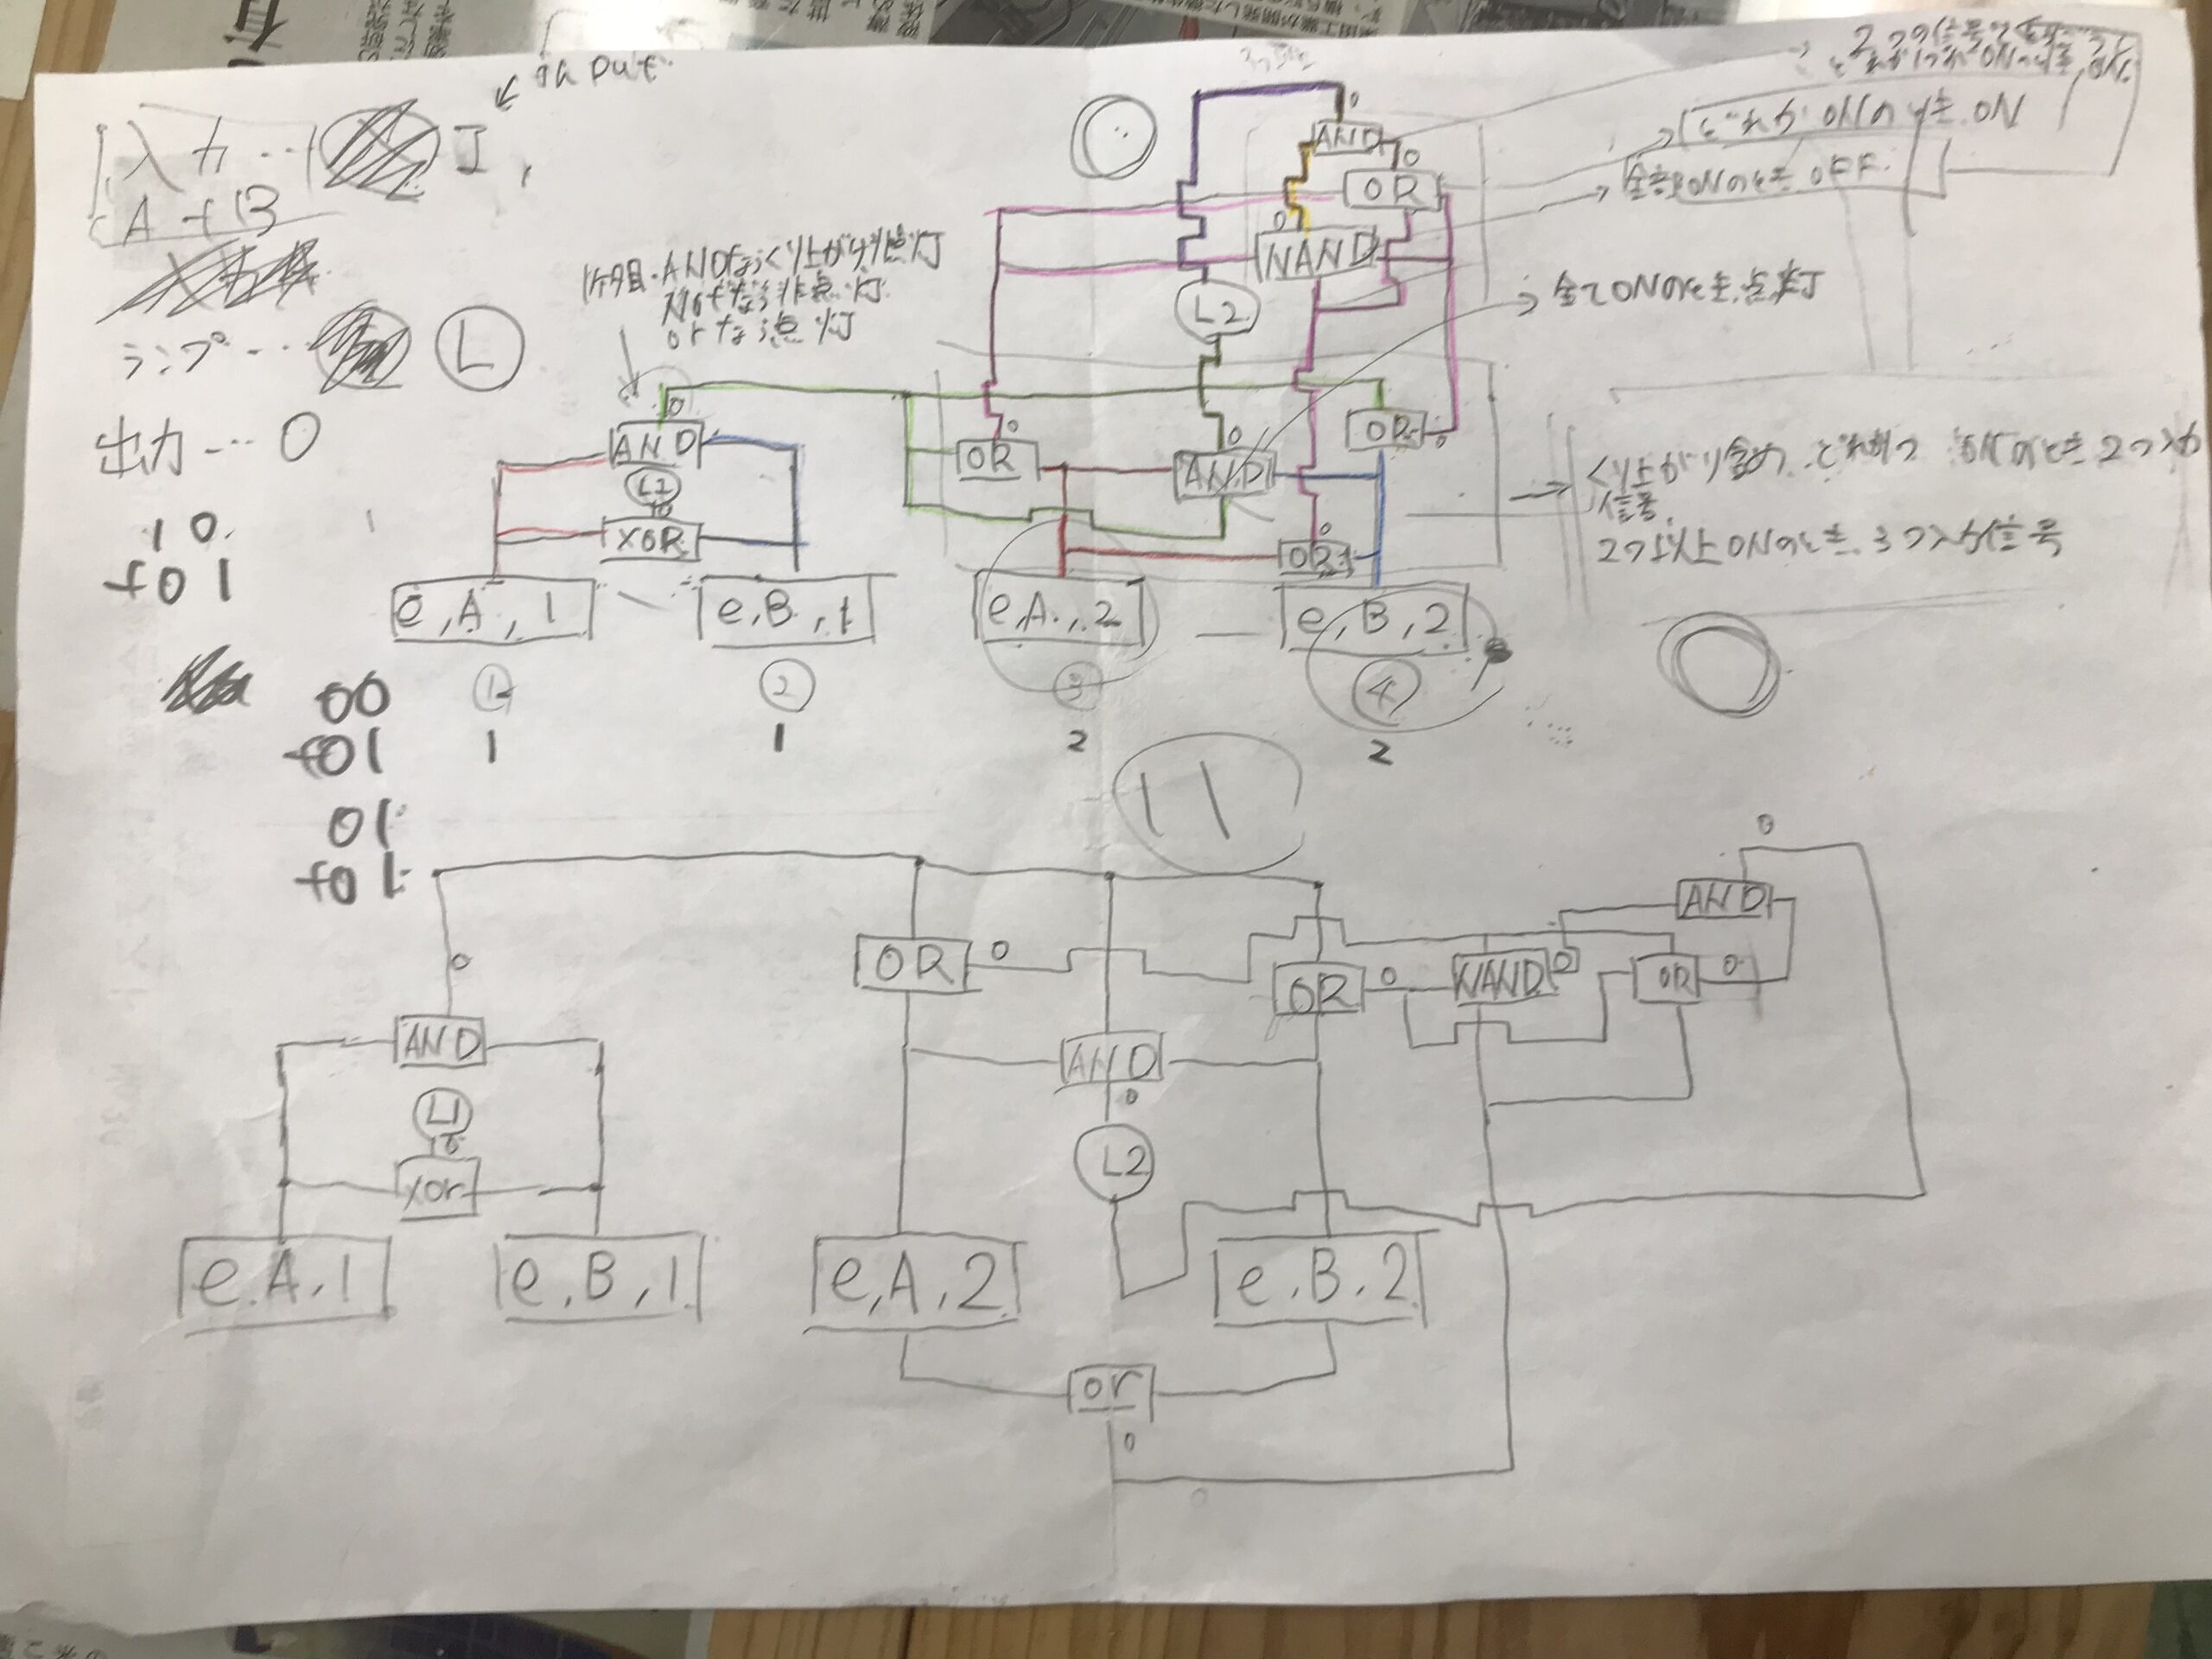 input
入力…I,
A+B
ランプ… L
出力…O
10
+01
00
+01
01
+01
1ケタ目・ANDならくり上がり非点灯
Notなら非点灯
orなら点灯
どれかONのとき ON
全部ONのとき OFF
全てONのとき点灯
くり上がり含め、どれか1つONのとき2つ入力
信号
2つ以上ONのとき、3つ入力信号
0
AND
0
OR
0
NAND
L2
0
AND
L1
0
XOR
0
OR
0
AND
OR
0
0
OR
e,A,1
e,B,1
e,A,2
e,B,2
① ② ③ ④
1 1 2 2
11
0
AND
0
OR 0
OR 0
NAND 0
OR 0
AND
AND
0
L1
0
xor
L2
e,A,1
e,B,1
e,A,2
e,B,2
or
0